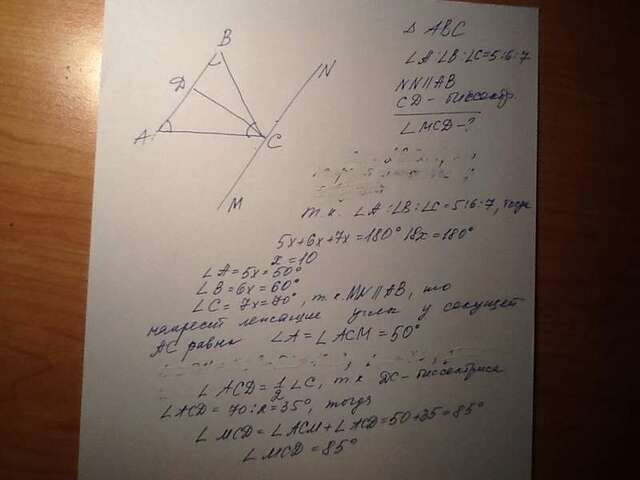 B
D
N
A
C
M
Δ ABC
∠A:∠B:∠C=5:6:7
NN||AB
CD - биссектр.
∠MCD - ?
т.к. ∠A:∠B:∠C=5:6:7, тогда
5x+6x+7x=180° 18x=180°
x=10
∠A=5x=50°
∠B=6x=60°
∠C=7x=70°, т.к. MN||AB, то
накрест лежащие углы у секущей
AC равны ∠A=∠ACM=50°
∠ACD=1/2∠C, т.к. DC - биссектриса
∠ACD=70:2=35°, тогда
∠MCD=∠ACM+∠ACD=50+35=85°
∠MCD=85°